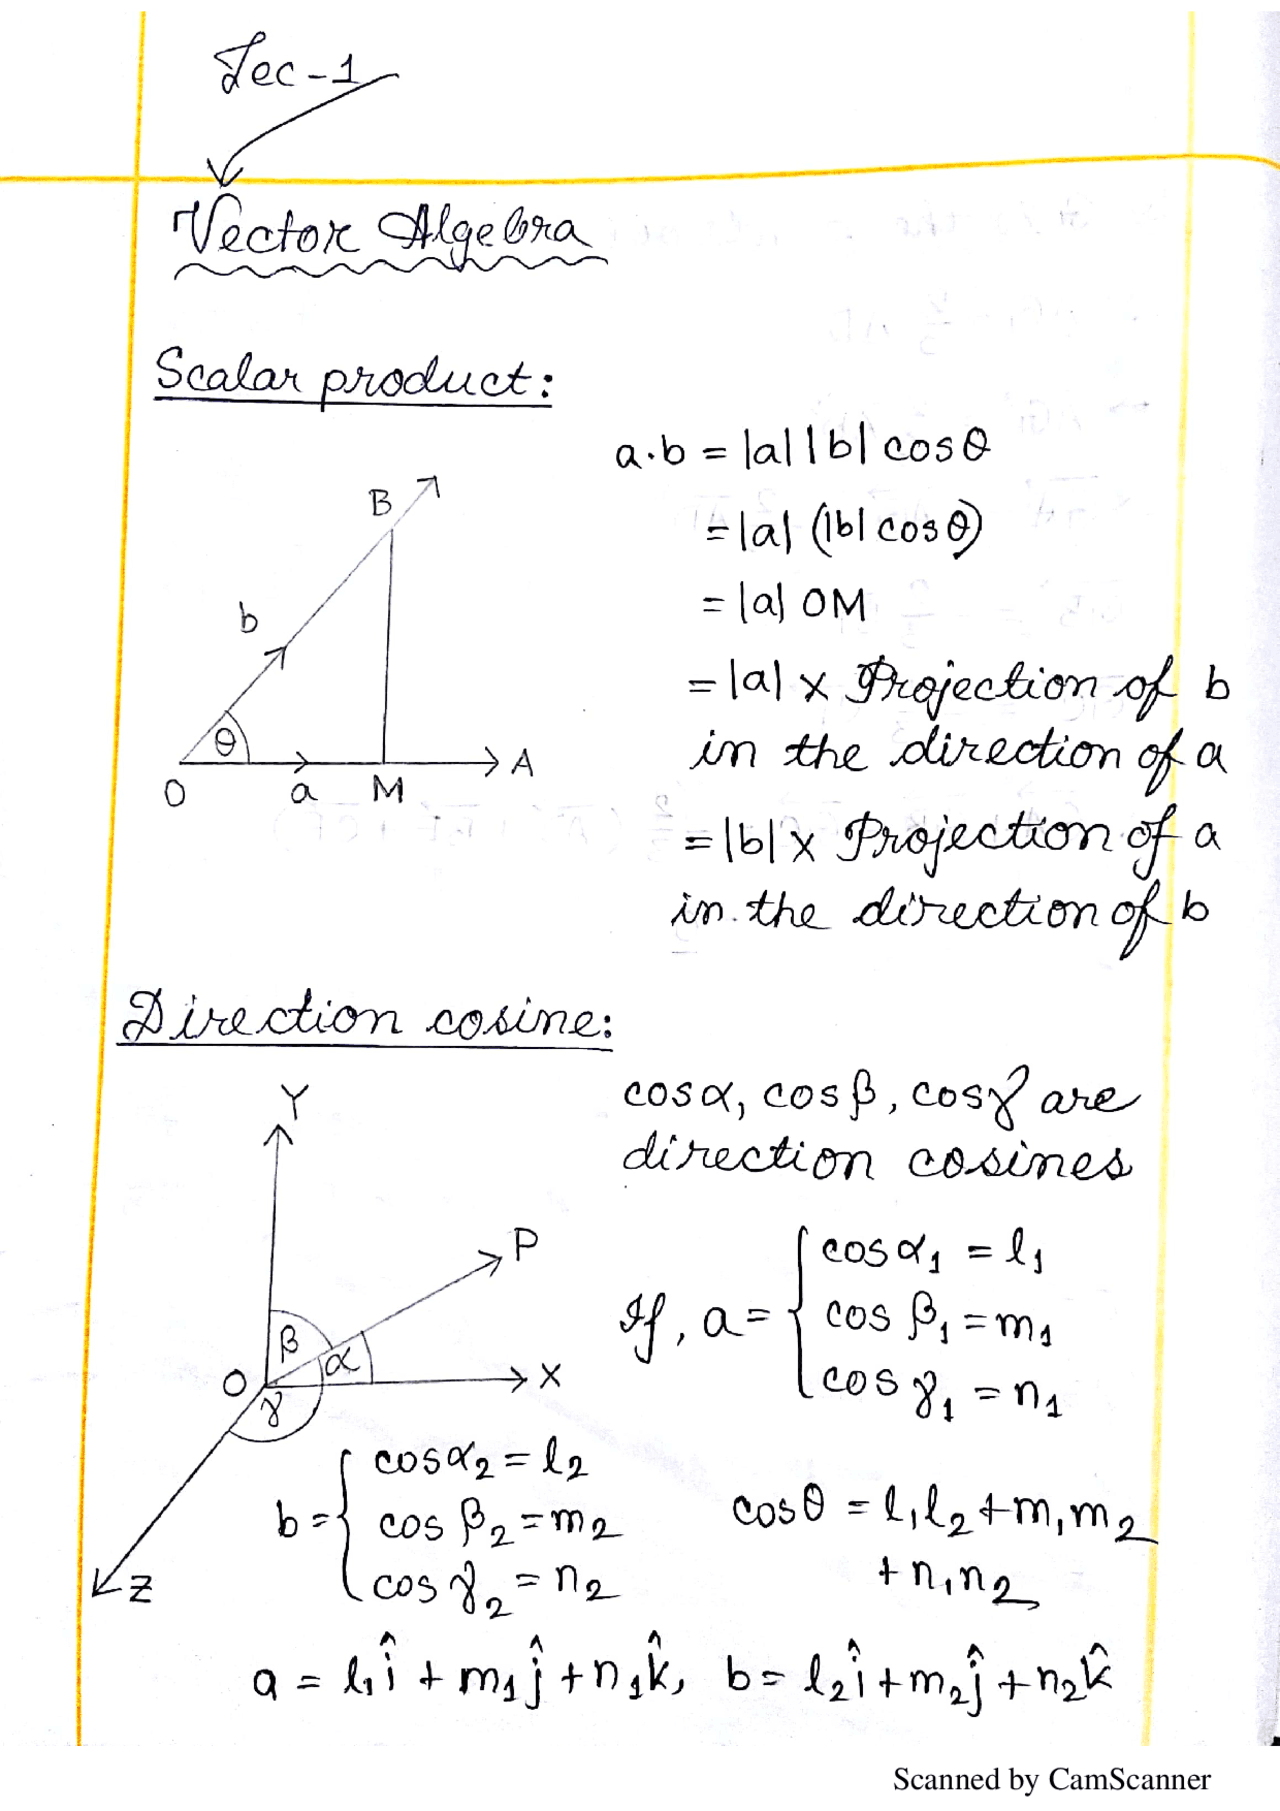 Lec-1
Vector Algebra
Scalar product:
a.b = |a||b| cosθ
= |a| (|b| cosθ)
= |a| OM
= |a| x Projection of b
in the direction of a
= |b| x Projection of a
in the direction of b
B
b
θ
O
a
M
A
Direction cosine:
cosα, cosβ, cosγ are
direction cosines
Y
P
β
α
O
X
γ
Z
If, a = { cosα₁ = l₁
cos β₁ = m₁
cos γ₁ = n₁
b = { cosα₂ = l₂
cos β₂ = m₂
cos γ₂ = n₂
cosθ = l₁l₂ + m₁m₂
+ n₁n₂
a = l₁î + m₁ĵ + n₁k̂, b = l₂î + m₂ĵ + n₂k̂
Scanned by CamScanner